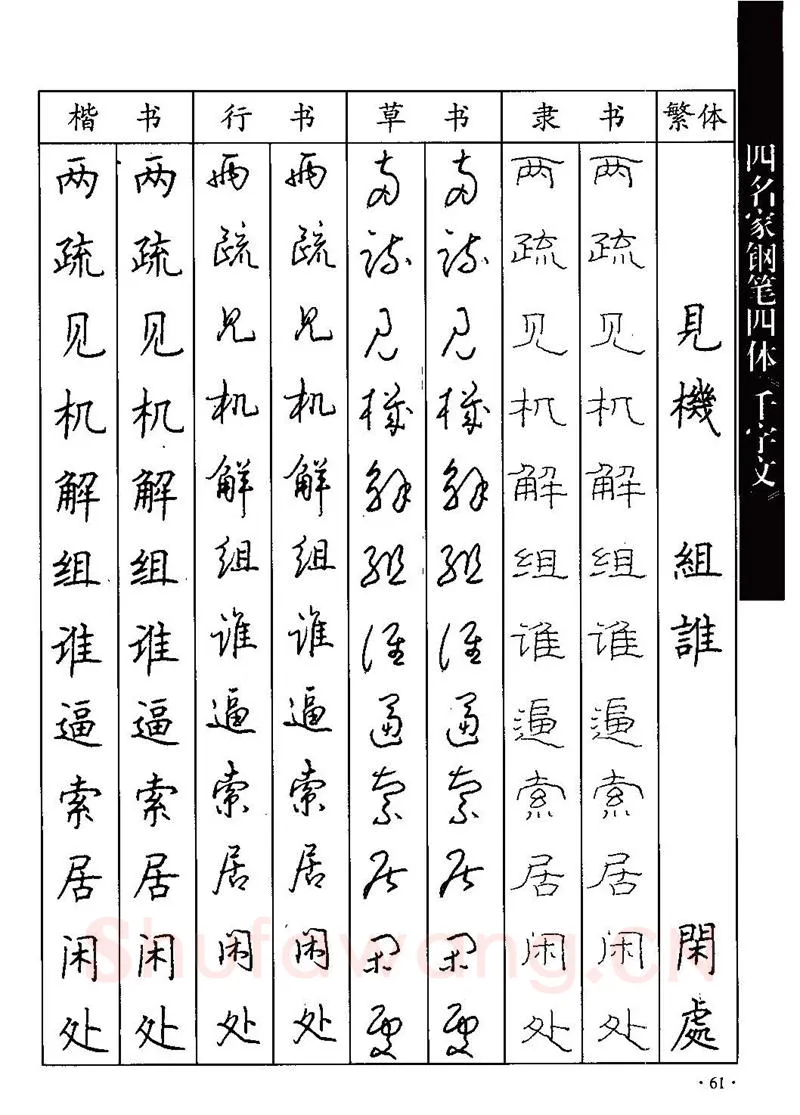 楷书 行书 草书 隶书 繁体
两 两 两 两 两 两 两 两
疏 疏 疏 疏 疏 疏 疏 疏
见 见 见 见 见 见 见 见 見
机 机 机 机 機 機 机 机 機
解 解 解 解 解 解 解 解
组 组 组 组 组 组 组 组 組
谁 谁 谁 谁 谁 谁 谁 谁 誰
逼 逼 逼 逼 逼 逼 逼 逼
索 索 索 索 索 索 索 索
居 居 居 居 居 居 居 居
闲 闲 闲 闲 闲 闲 闲 闲 閑
处 处 处 处 處 處 处 处 處
四名家钢笔四体《千字文》
Shufawang.CN
·61·